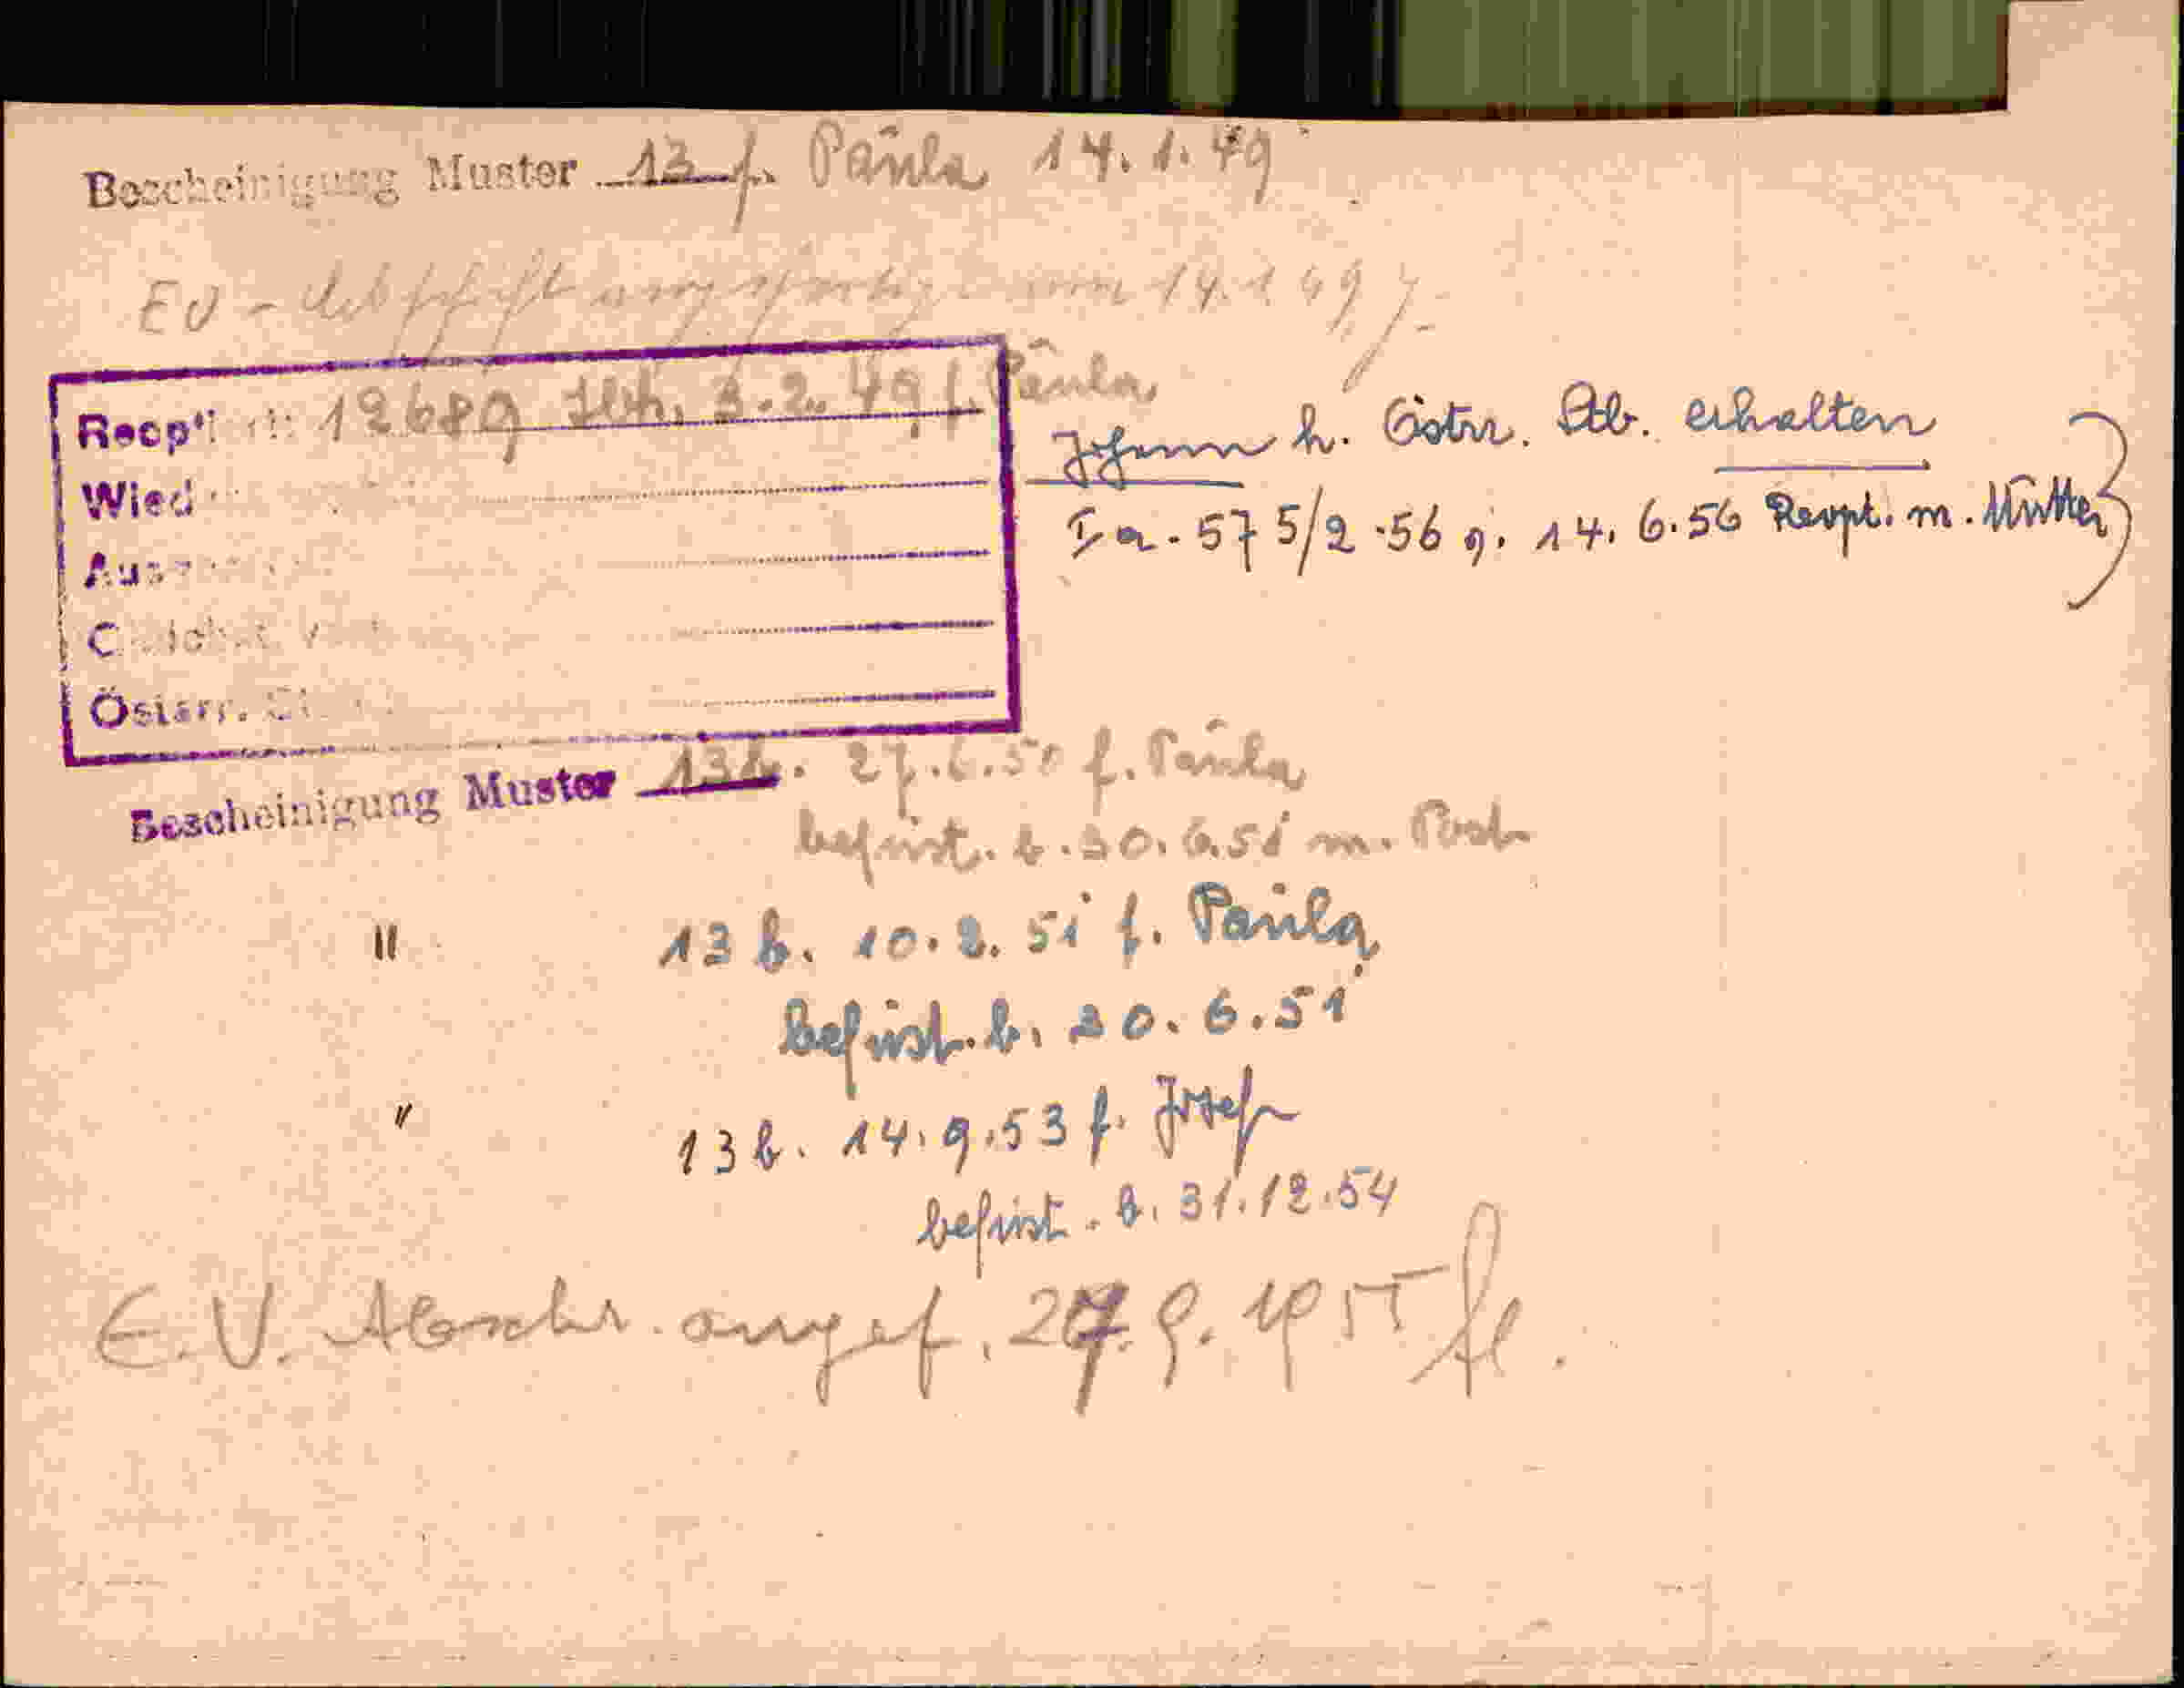 Bescheinigung Muster 13 f. Paula 14.1.49
EV - Abschrift 14.1.49
12689 3.2.49 f. Paula
Johann h. Östr. Stb. erhalten
I a. 575/2.56 g. 14.6.56 Rempt. m. Mutter
Österr.
Bescheinigung Muster 13b. 27.6.50 f. Paula
befrist. b. 30.6.51 m. Post
" 13 b. 10.2.51 f. Paula
befrist. b. 30.6.51
" 13 b. 14.9.53 f. Josef
befrist. b. 31.12.54
E.V. Abschr. ausgef. 27.9.1955